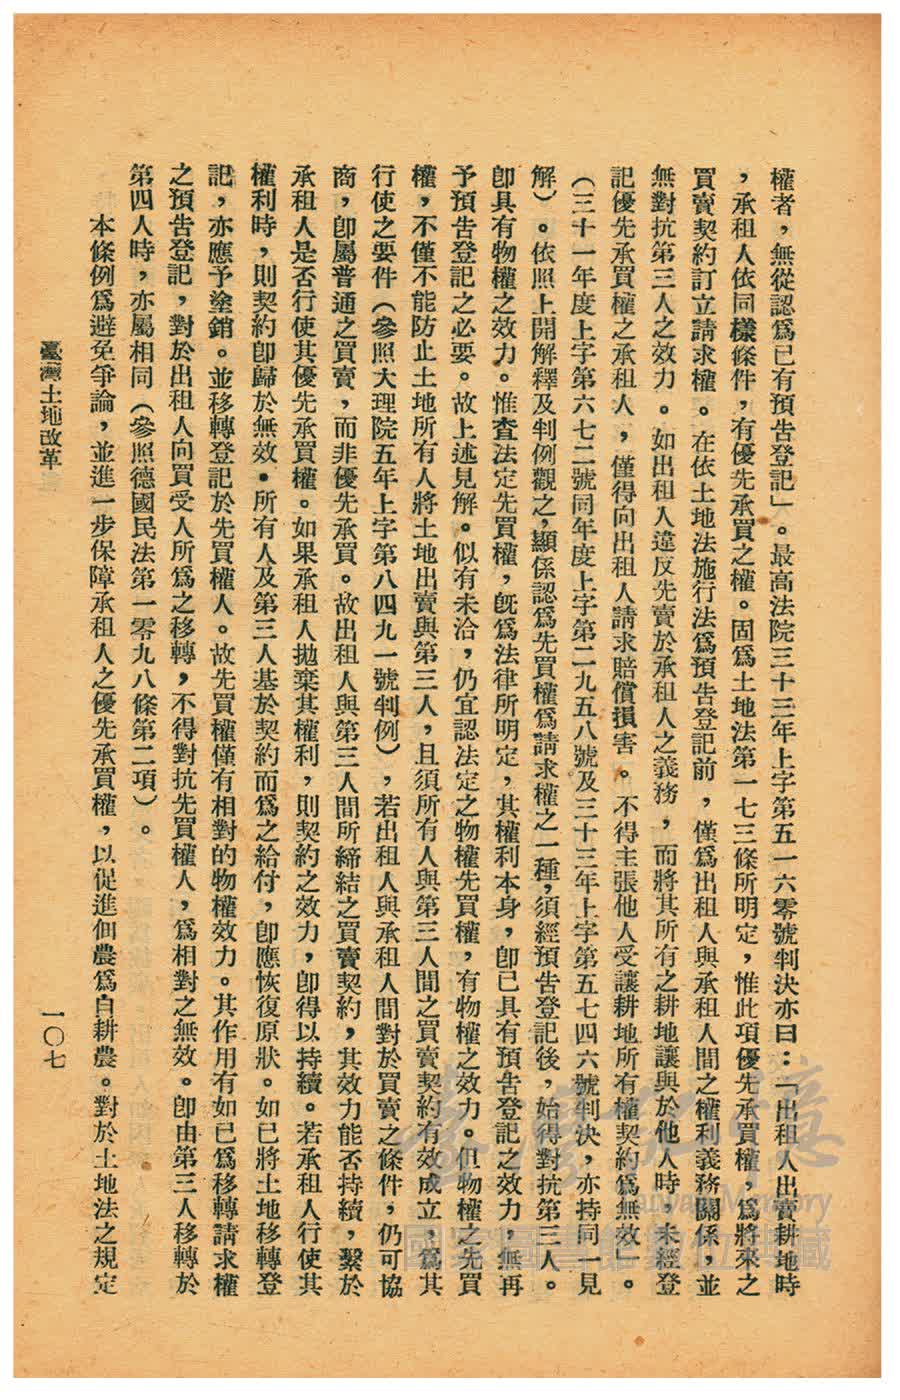 權者，無從認爲已有預告登記」。最高法院三十三年上字第五一六零號判決亦曰：「出租人出賣耕地時
，承租人依同樣條件，有優先承買之權。固爲土地法第一七三條所明定，惟此項優先承買權，爲將來之
買賣契約訂立請求權。在依土地法施行法爲預告登記前，僅爲出租人與承租人間之權利義務關係，並
無對抗第三人之效力。如出租人違反先賣於承租人之義務，而將其所有之耕地讓與於他人時，未經登
記優先承買權之承租人，僅得向出租人請求賠償損害。不得主張他人受讓耕地所有權契約爲無效」。
（三十一年度上字第六七二號同年度上字第二九五八號及三十三年上字第五七四六號判決，亦持同一見
解）。依照上開解釋及判例觀之，顯係認爲先買權爲請求權之一種，須經預告登記後，始得對抗第三人。
卽具有物權之效力。惟查法定先買權，旣爲法律所明定，其權利本身，卽已具有預告登記之效力，無再
予預告登記之必要。故上述見解。似有未洽，仍宜認法定之物權先買權，有物權之效力。但物權之先買
權，不僅不能防止土地所有人將土地出賣與第三人，且須所有人與第三人間之買賣契約有效成立，爲其
行使之要件（參照大理院五年上字第八四九一號判例），若出租人與承租人間對於買賣之條件，仍可協
商，卽屬普通之買賣，而非優先承買。故出租人與第三人間所締結之買賣契約，其效力能否持續，繫於
承租人是否行使其優先承買權。如果承租人拋棄其權利，則契約之效力，卽得以持續。若承租人行使其
權利時，則契約卽歸於無效。所有人及第三人基於契約而爲之給付，卽應恢復原狀。如已將土地移轉登
記，亦應予塗銷。並移轉登記於先買權人。故先買權僅有相對的物權效力。其作用有如已爲移轉請求權
之預告登記，對於出租人向買受人所爲之移轉，不得對抗先買權人，爲相對之無效。卽由第三人移轉於
第四人時，亦屬相同（參照德國民法第一零九八條第二項）。
本條例爲避免爭論，並進一步保障承租人之優先承買權，以促進佃農爲自耕農。對於土地法之規定
臺灣土地改革
一〇七
臺灣記憶
Taiwan Memory
國家圖書館數位典藏